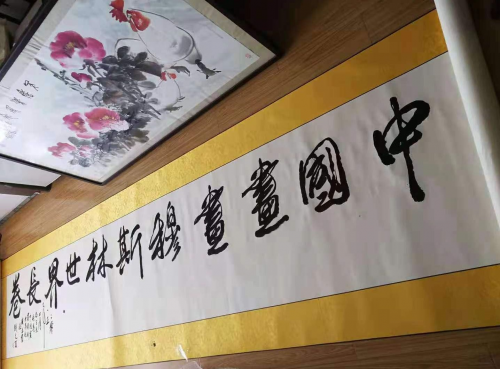 中國畫畫穆斯林世界長卷